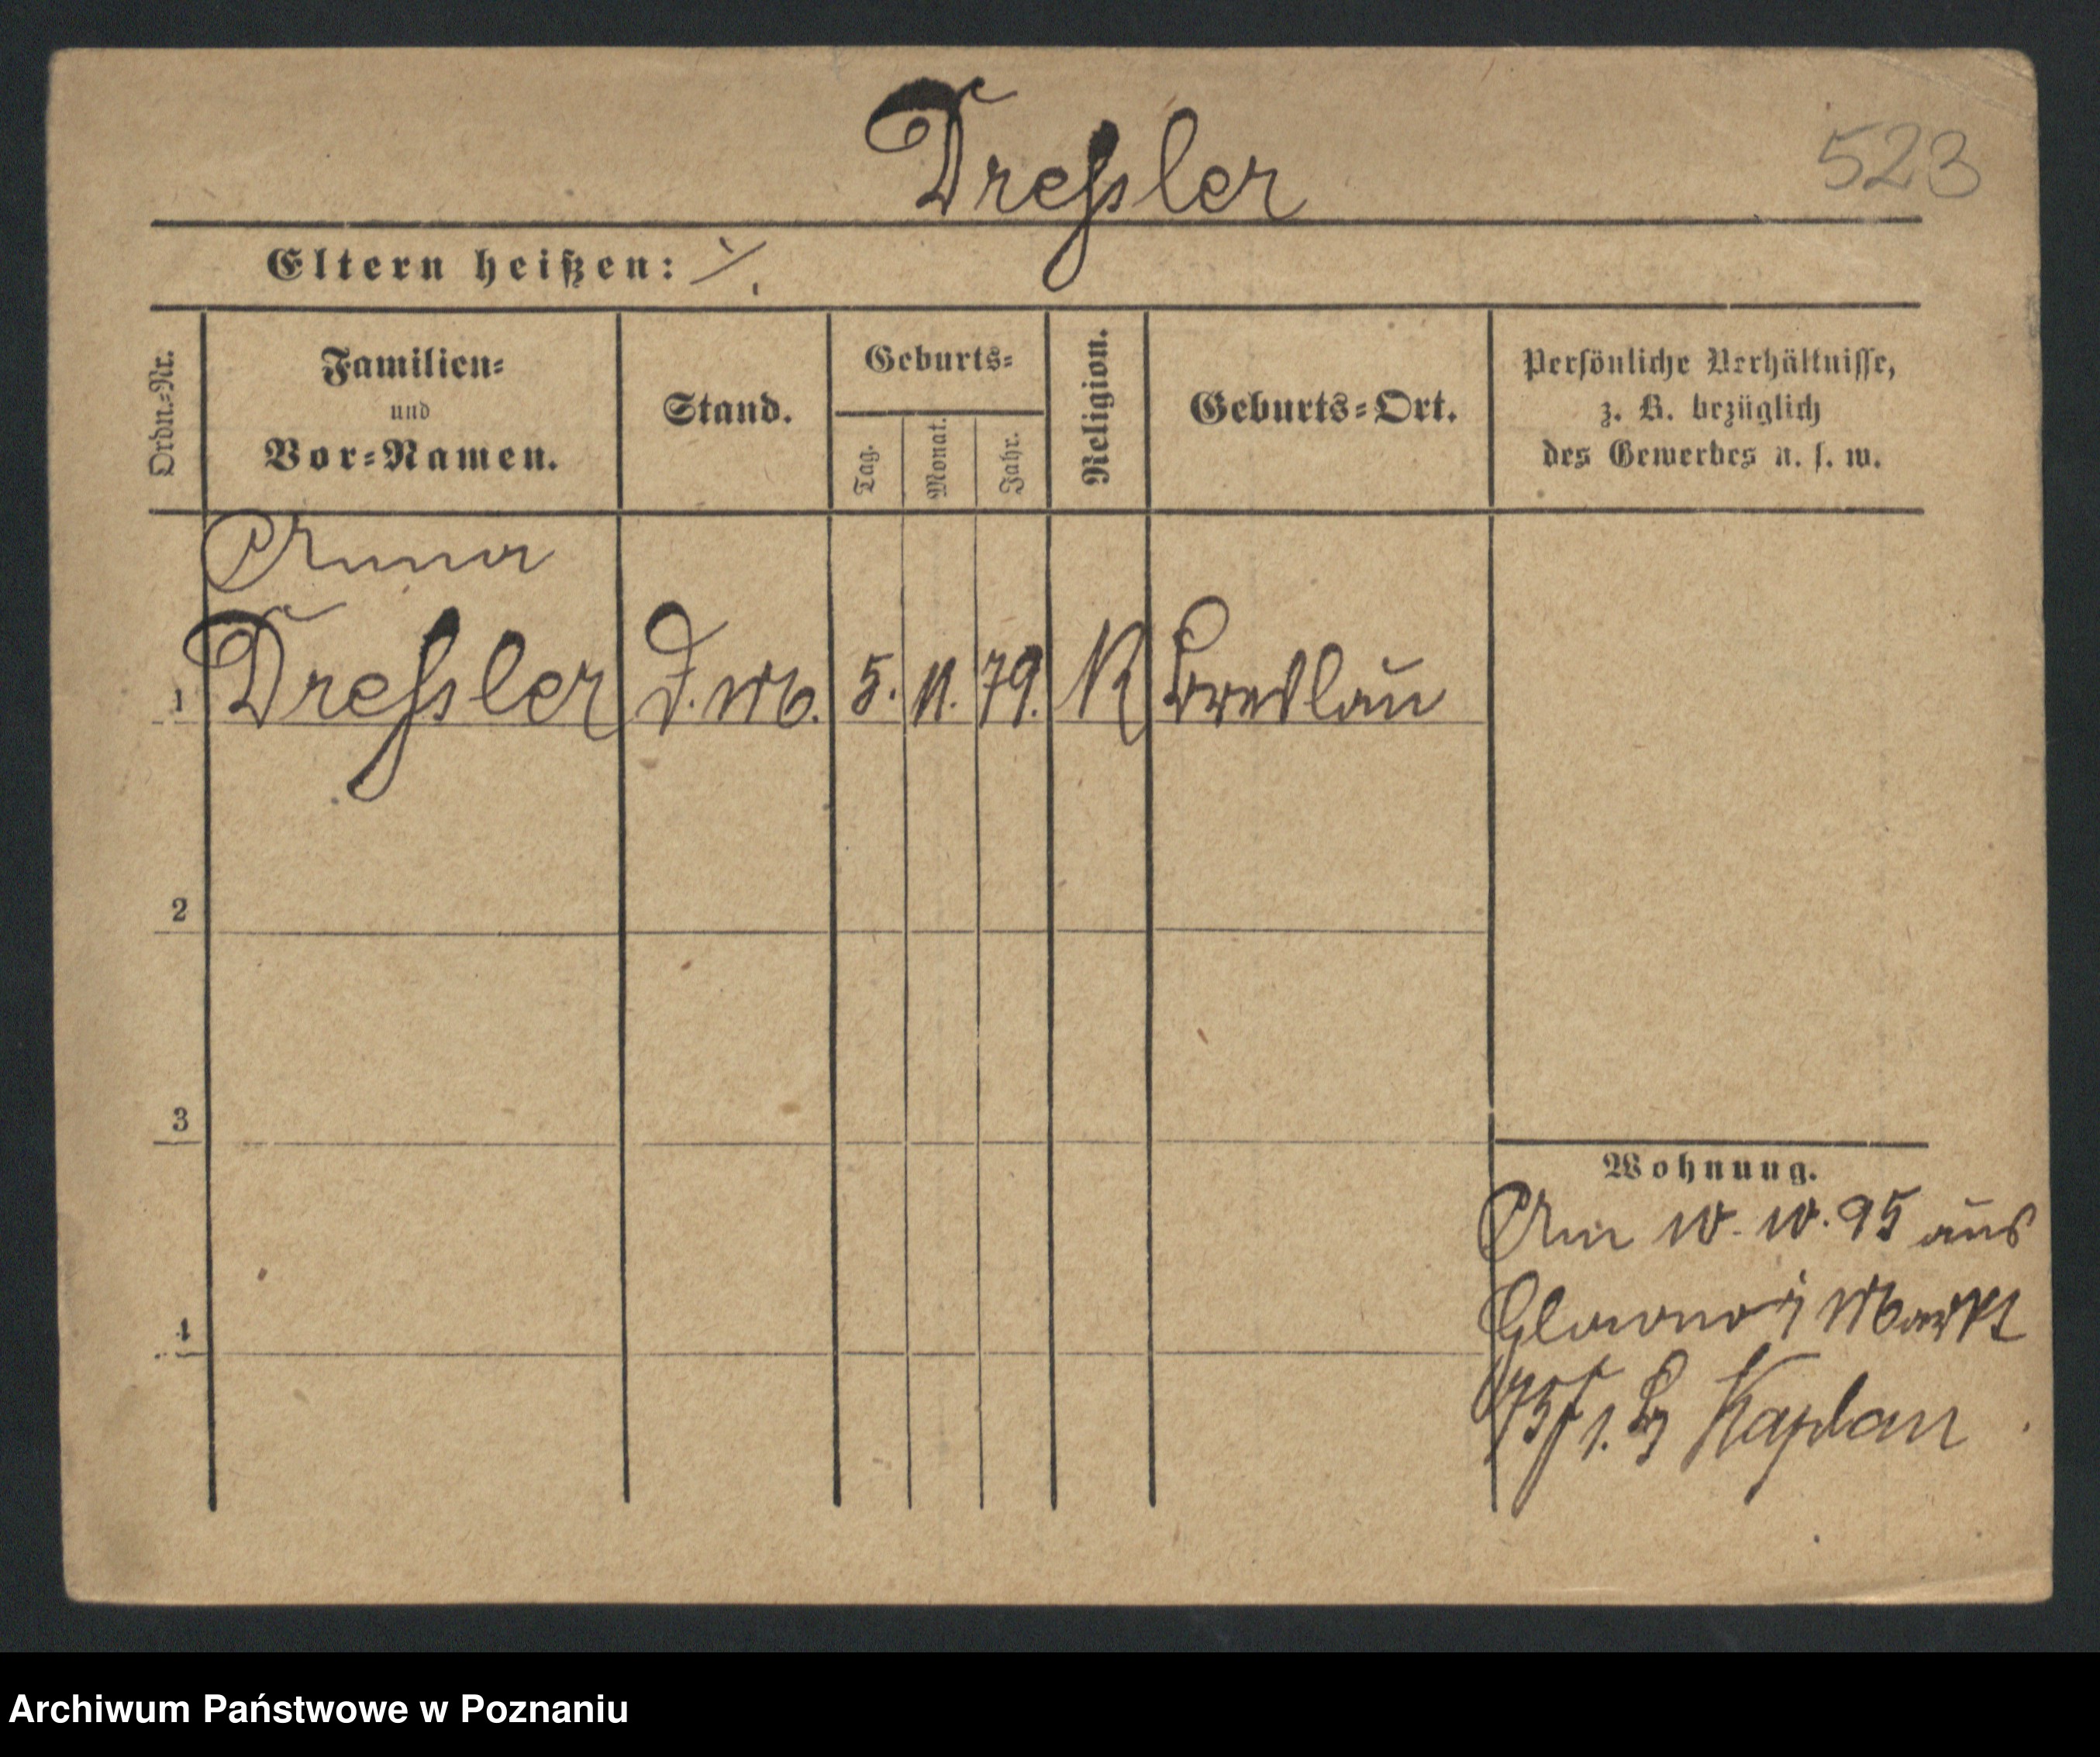 Dreßler
523
Eltern heißen: ./.
Ordn.-Nr.
Familien-
und
Vor-Namen.
Stand.
Geburts-
Tag.
Monat.
Jahr.
Religion.
Geburts-Ort.
Persönliche Verhältnisse,
z. B. bezüglich
des Gewerbes u. s. w.
Anna
1 Dreßler D. M. 5. 11. 79. K Breslau
2
3
4
Wohnung.
Am 10. 10. 95 aus
Markt
75 1. b Kaplan
Archiwum Państwowe w Poznaniu